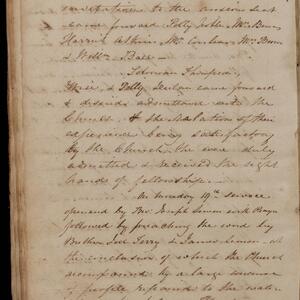 invitation to the anxious seat
came forward Polly Noble, Mrs Brown
Harriet Askin, Mrs Conlan, Mrs Brown
& William Ball
Solomon Thompson
Wise, & Polly Scalan came forward
& desired admittance into the
Church. & the Relation of their
experience being satisfactory
by the Church the ware duly
admitted & received the right
hand of fellowship.
On Sunday 19th service
opened by Bro. Joseph Lemon with Prayer
followed by preaching the word by
Brother Joel Terry & James Lemon. at
the conclusion of which the Church
accompanied by a large concourse
of people repaired to the water